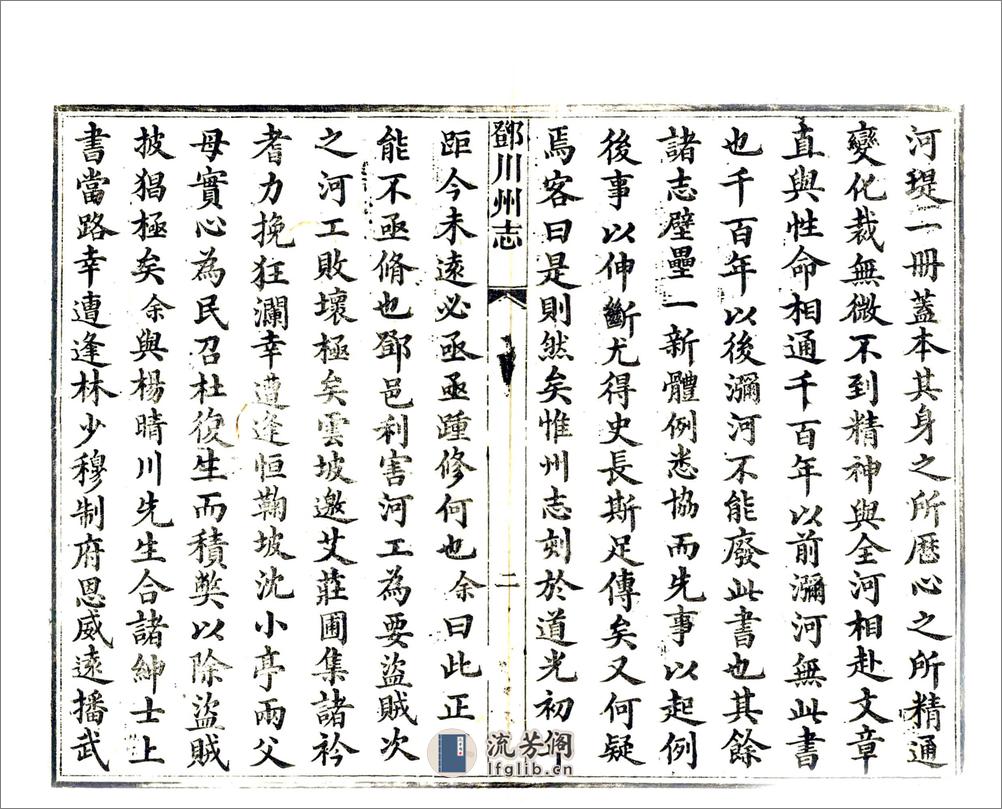 河堤一冊蓋本其身之所歷心之所精通
變化裁無微不到精神與全河相赴文章
直與性命相通千百年以前瀰河無此書
也千百年以後瀰河不能廢此書也其餘
諸志壁壘一新體例悉協而先事以起例
後事以伸斷尤得史長斯足傳矣又何疑
焉客曰是則然矣惟州志刻於道光初
鄧川州志
二
距今未遠必亟亟踵修何也余曰此正
能不亟脩也鄧邑利害河工為要盜賊次
之河工敗壞極矣雲坡邀艾莊圃集諸衿
耆力挽狂瀾幸遭逢恒鞠坡沈小亭兩父
母實心為民召杜復生而積獘以除盜賊
披猖極矣余與楊晴川先生合諸紳士上
書當路幸遭逢林少穆制府恩威遠播武
流芳阁
lfglib.cn